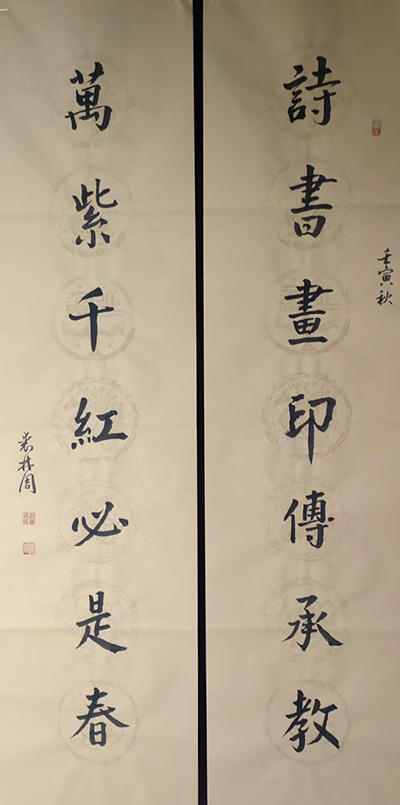 詩書畫印傳承教
壬寅秋
萬紫千紅必是春